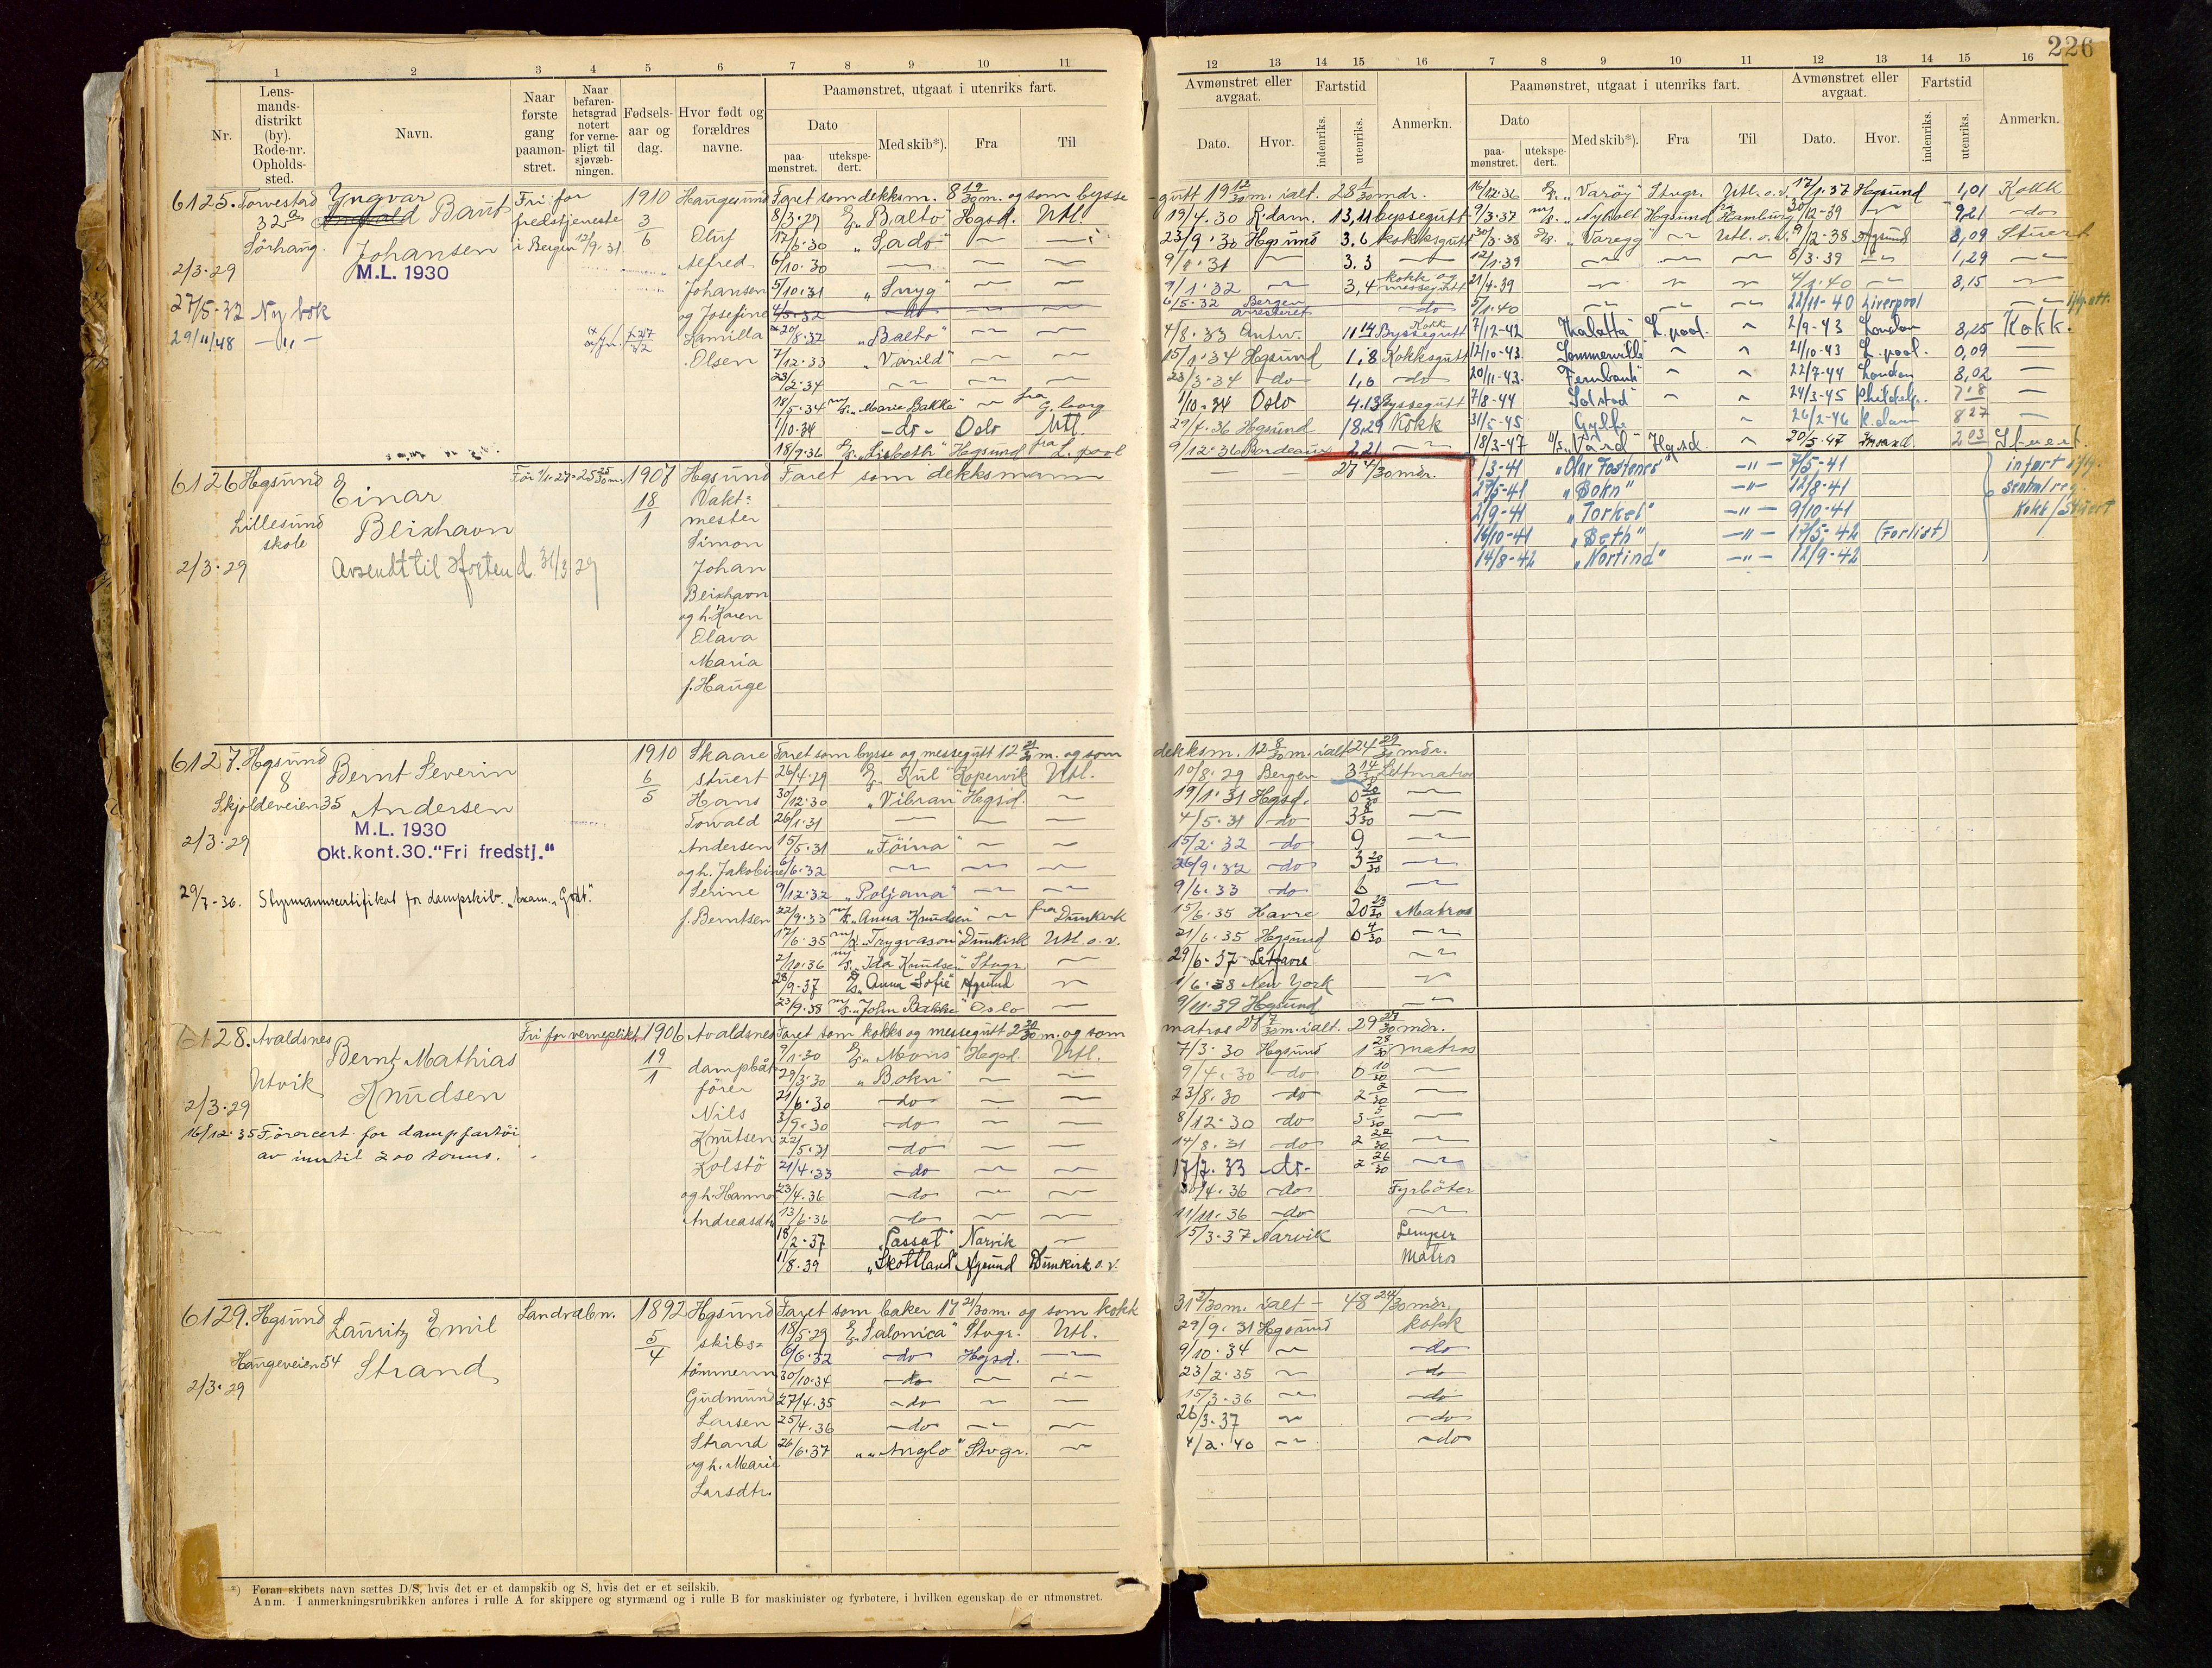 226
1 2 3 4 5 6 7 8 9 10 11
12 13 14 15 16 7 8 9 10 11 12 13 14 15 16
Nr.
Lens-
mands-
distrikt
(by).
Rode-nr.
Opholds-
sted.
Navn.
Naar
første
gang
paamøn-
stret.
Naar
befaren-
hetsgrad
notert
for verne-
pligt til
sjøvæb-
ningen.
Fødsels-
aar og
dag.
Hvor født og
forældres
navne.
Paamønstret, utgaat i utenriks fart.
Dato
paa-
mønstret.
utekspe-
dert.
Med skib*).
Fra
Til
Avmønstret eller
avgaat.
Dato.
Hvor.
Fartstid
indenriks.
utenriks.
Anmerkn.
Paamønstret, utgaat i utenriks fart.
Dato
paa-
mønstret.
utekspe-
dert.
Med skib*).
Fra
Til
Avmønstret eller
avgaat.
Dato.
Hvor.
Fartstid
indenriks.
utenriks.
Anmerkn.
6125. Torvestad
Sørhaug.
2/3-29
27/5-32 Ny bok
29/11/48 — " —
Yngvar
Johansen
M.L. 1930
Fri for
fredstjeneste
i Bergen 12/9-31
1910
3
6
Haugesund
Oluf
Alfred
Johansen
og Josefine
Kamilla
Olsen
Faret som dekksm. 8 m. og som bysse
8/3-29 "Balto" Hgsd. Utl.
17/6-30 "Sado"
6/10-30
5/10-31 "Snyg"
4/5-32 do
/8-32 "Balto"
7/12-33 "Varild"
23/2-34
18/5-34 "Marie Bakke" fra G.borg
1/10-34 do - Oslo Utl.
18/9-36 "Lisbeth" Hgsund fra L.pool
gutt 19 m. ialt. 28 mdr.
19/4.30 R.dam. 13,11 byssegutt
23/9.30 Hgsund 3,6 kokksgutt
9/1.31 3.3
9/1.32 3,4 kokk og messegutt
6/5-32 Bergen arresteret do
4/8.33 Antw. 11 14 Byssegutt
15/1.34 Hgsund 1,8 Kokksgutt
23/3-34 do 1,6 do
1/10-34 Oslo 4.13 Byssegutt
29/7.36 Hgsund 18,29 Kokk
9/12-36 Bordeaux 2,21
16/12-36 "Varöy" Stvgr. Utl. o.v. 17/1-37 Hgsund 1,01 Kokk
9/3-37 "Nyholt" Hgsund Hamburg 30/12-39 9,21 do
30/3-38 "Varegg" Utl. o.v. 9/12-38 Hgsund 8,09 Stuert
12/1-39 8/3-39 1,29
21/4-39 4/1-40 8,15
5/1-40 22/11-40 Liverpool
7/12-42 "Thalatta" L.pool. 2/9-43 London 8,25 Kokk.
12/10-43. "Sommerville" 21/10-43 L.pool. 0,09
20/11-43. "Fernbank" 22/7-44 London 8,02
7/8-44 "Solstad" 24/3-45 Philadelp. 7.18
31/5-45 Gylfe 26/2-46 R.dam 8 27
18/3-47 "Vard" Hgsd. 20/5.47 2 03 Stuert.
6126 Hgsund
Lillesund
skole
2/3-29
Einar
Blixhavn
Avsendt til Horten d. 31/3 29
1907
18
1
Hgsund
Vakt-
mester
Simon
Johan
Blixhavn
og h. Karen
Olava
Maria
f. Hauge
Faret som dekksmann
27 4/30 mdr.
1/3-41 "Olav Fostenes" —"— 7/5-41
29/5-41 "Bokn" —"— 12/8-41
2/9-41 "Torkel" —"— 9/10-41
16/10-41 "Beth" —"— 17/5-42 (Forlist)
14/8-42 "Nortind" —"— 12/9-42
infört iflg.
sentral reg.
Kokk/Stuert
6127. Hgsund
8
Skjoldeveien 35
2/3-29
29/7-36. Styrmannscertifikat for dampskib. "Exam. "Godt".
Bernt Severin
Andersen
M.L. 1930
Okt.kont.30."Fri fredstj."
1910
6
5
Skaare
stuert
Hans
Torvald
Andersen
og h. Jakobine
Serine
f. Berntsen
Faret som bysse og messegutt 12 m. og som
26/4-29 "Kul" Kopervik Utl.
30/12-30 "Vibran" Hgsd.
26/1-31
15/5-31 "Föina"
6/6-32
9/12-32 "Poljana"
22/9-33 "Anna Knudsen" fra Dunkirk
17/6-35 "Trygvason" Dunkirk Utl. o.v.
2/10-36 "Ida Knudsen" Stvgr.
28/9-37 "Anna Sofie" Hgsund
23/9-38 "John Bakke" Oslo
dekksm. 12 8/30 m. ialt 24 29/30 mdr.
10/8.29 Bergen 3 14 Lettmatros
19/1.31 Hgsd. 0 20/30
4/5.31 do 3 8/30
15/2.32 do 9
26/9.32 do 3 20/30
9/6.33 do 6
15/6.35 Havre 20 23/30 Matros
21/6.35 Hgsund 0 4/30
29/6-37
1/6.38 New York
9/11.39 Hgsund
6128. Avaldsnes
Utvik
2/3-29
16/12-35 Förercert. for dampfartöi
av inntil 200 tonns.
Bernt Mathias
Knudsen
Fri for verneplikt.
1906
19
1
Avaldsnes
dampbåt
förer
Nils
Knutsen
Kolstö
og h. Hanna
Andreasdtr
Faret som kokks og messegutt 2 20/30 m. og som
9/1-30 "Mons" Hgsd. Utl.
29/3-30 "Bokn"
21/6-30 do
3/9-30 do
22/5-31 do
21/4-33 do
23/4-36 do
13/6-36 do
18/2-37 "Passat" Narvik
11/8-39 "Skottland" Hgsund Dunkirk o.v.
matros 27 7/30 m. ialt. 29 27/30 mdr.
7/3-30 Hgsund 1 28/30 matros
9/4.30 do 0 10/30
23/8.30 do 2 2/30
8/12-30 do 3 5/30
14/8.31 do 2 22/30
17/7.33 do 2 26/30
30/4.36 do Fyrböter
11/11.36 do
15/3-37 Narvik Lemper
Matros
6129. Hgsund
Haugeveien 54
2/3-29
Lauritz Emil
Strand
Landvabn.
1892
5
4
Hgsund
skibs-
tömmerm
Gudmund
Larsen
Strand
og h. Marie
Larsdtr.
Faret som baker 17 21/30 m. og som kokk
18/5-29 "Salonica" Stvgr. Utl.
6/6-32 do Hgsd.
30/10-34 do
27/4-35 do
25/4-36 do
26/6-37 "Anglo" Stvgr.
31 3/30 m. ialt — 48 24/30 mdr.
29/9.31 Hgsund kokk
9/10.34 do
23/2-35 do
15/3-36 do
26/3-37 do
4/2.40 do
*) Foran skibets navn sættes D/S, hvis det er et dampskib og S, hvis det er et seilskib.
Anm. I anmerkningsrubrikken anføres i rulle A for skippere og styrmænd og i rulle B for maskinister og fyrbøtere, i hvilken egenskap de er utmønstret.